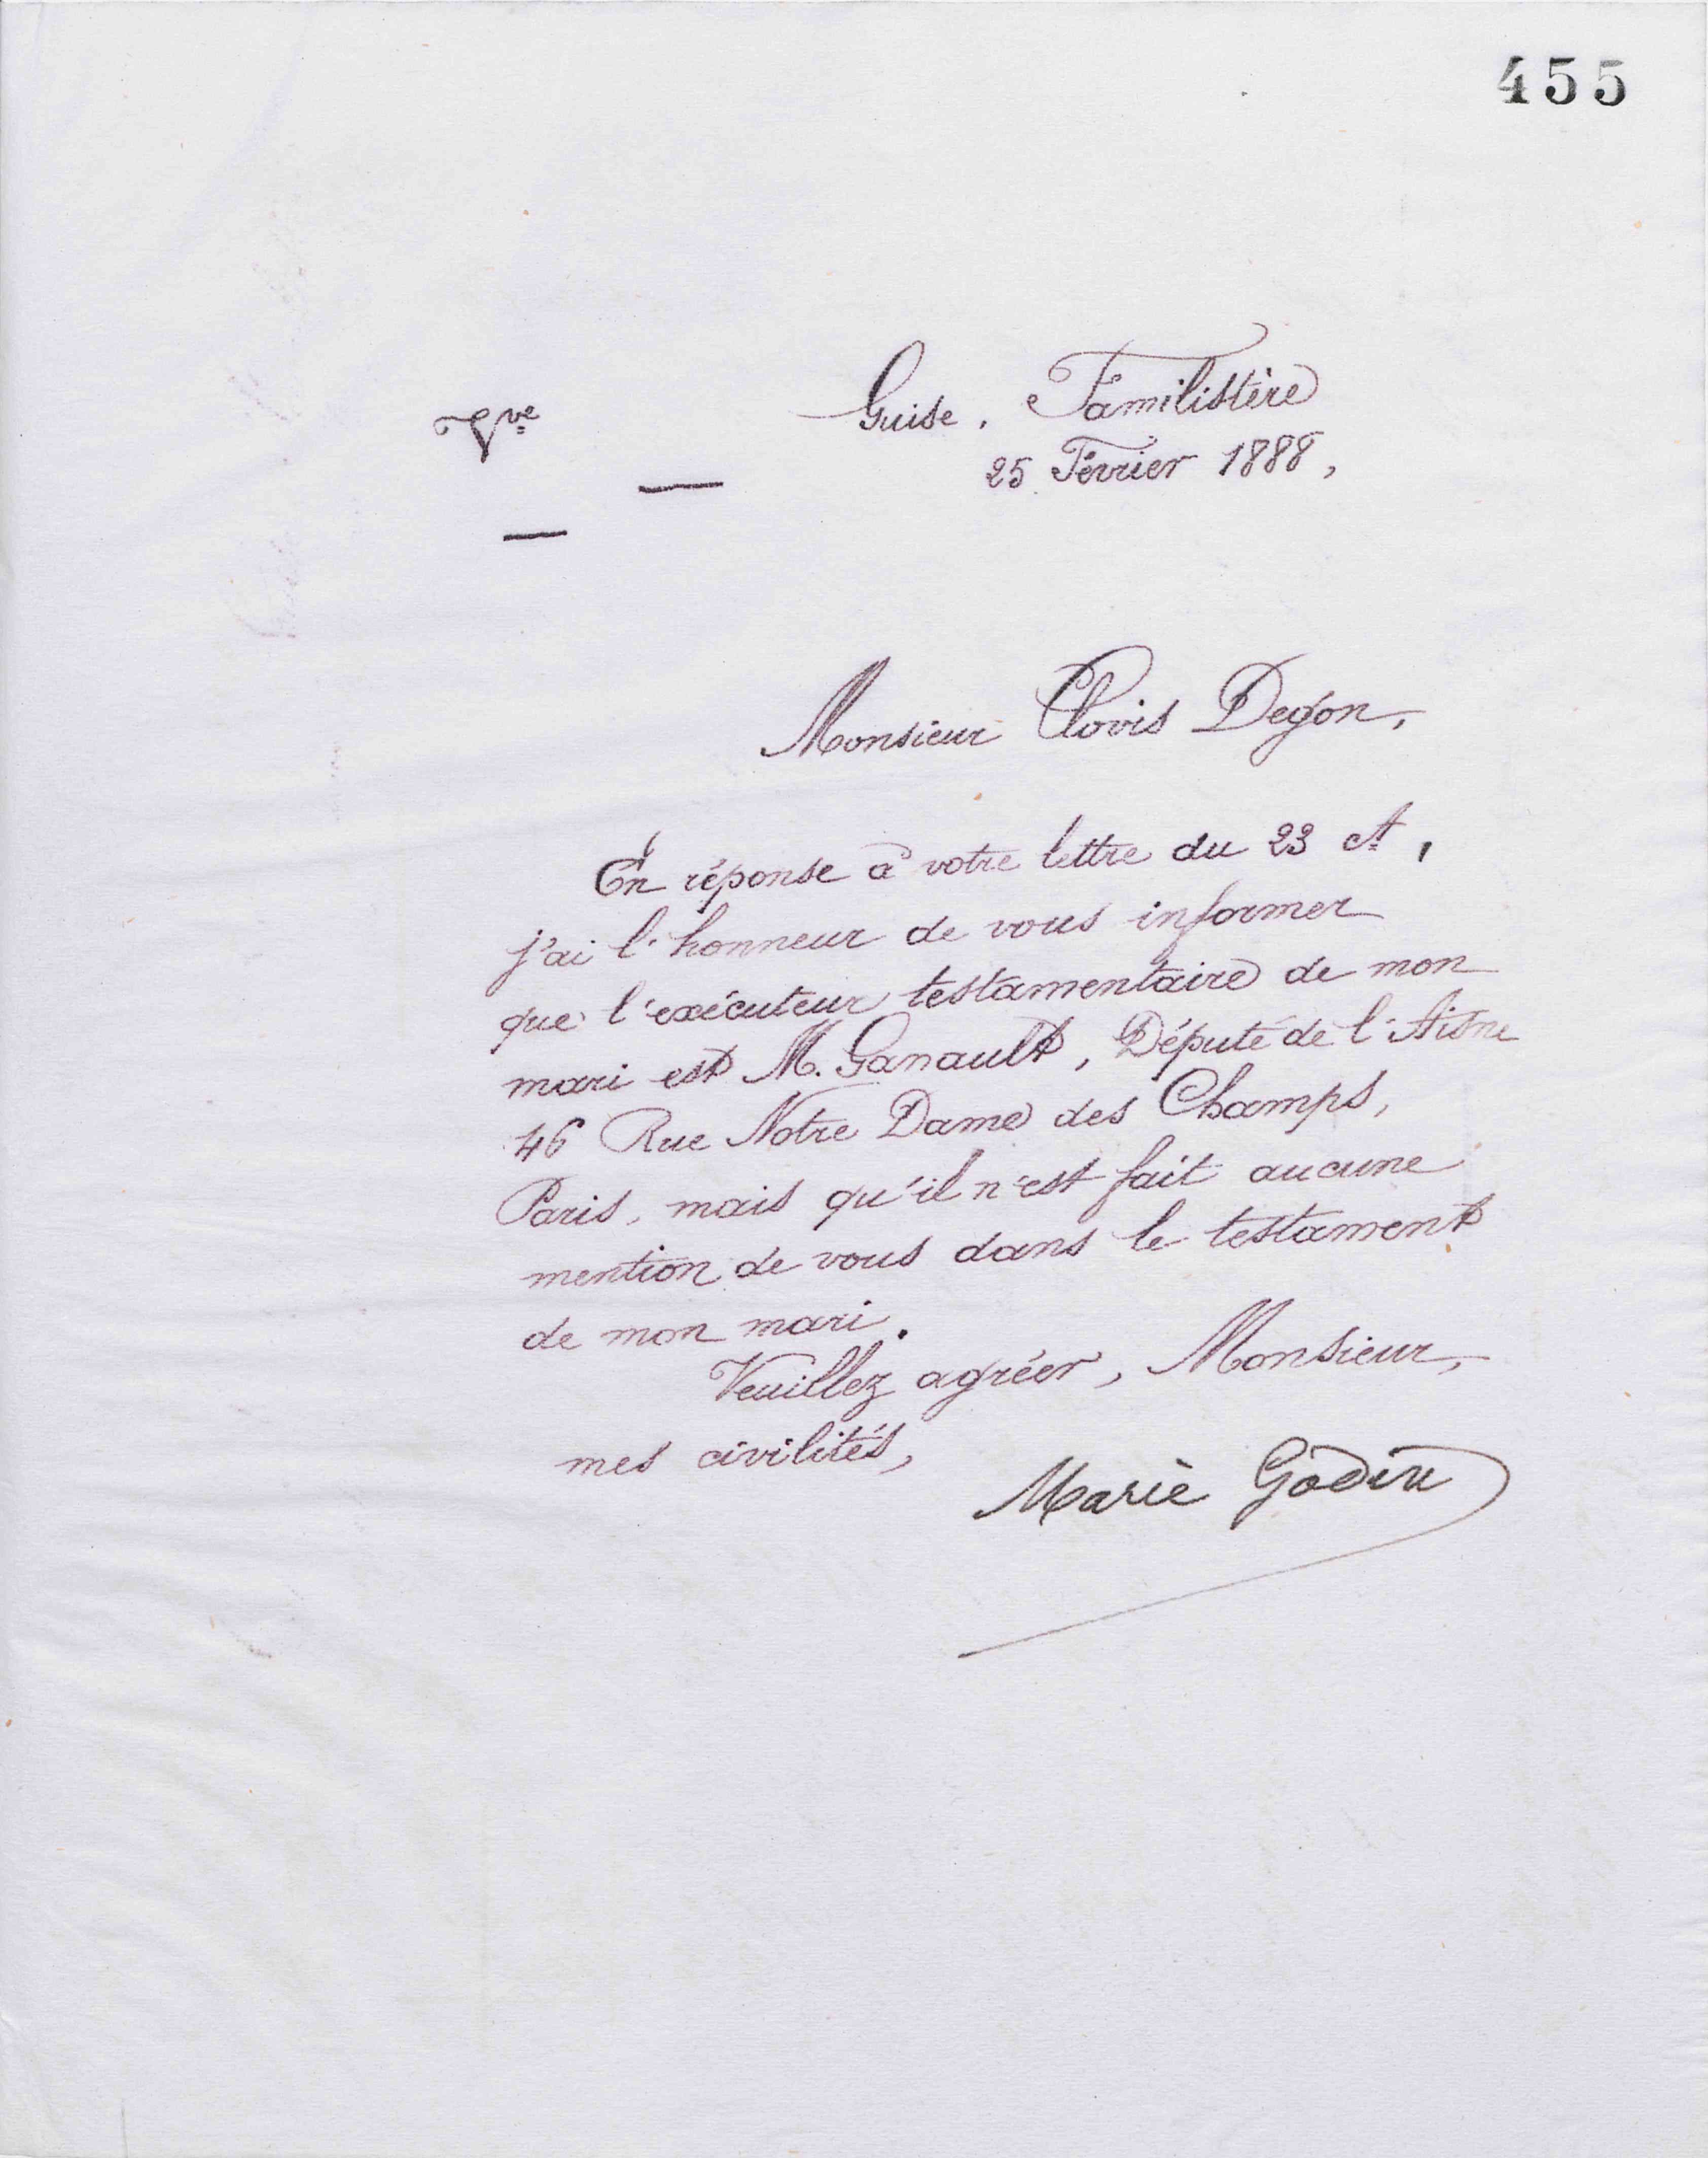 455
Vve
Guise. Familistère
25 Février 1888,
Monsieur Clovis Degon,
En réponse à votre lettre du 23 ct,
j'ai l'honneur de vous informer
que l'exécuteur testamentaire de mon
mari est M. Ganault, Député de l'Aisne
46 Rue Notre Dame des Champs,
Paris, mais qu'il n'est fait aucune
mention de vous dans le testament
de mon mari.
Veuillez agréer, Monsieur,
mes civilités,
Marie Godin